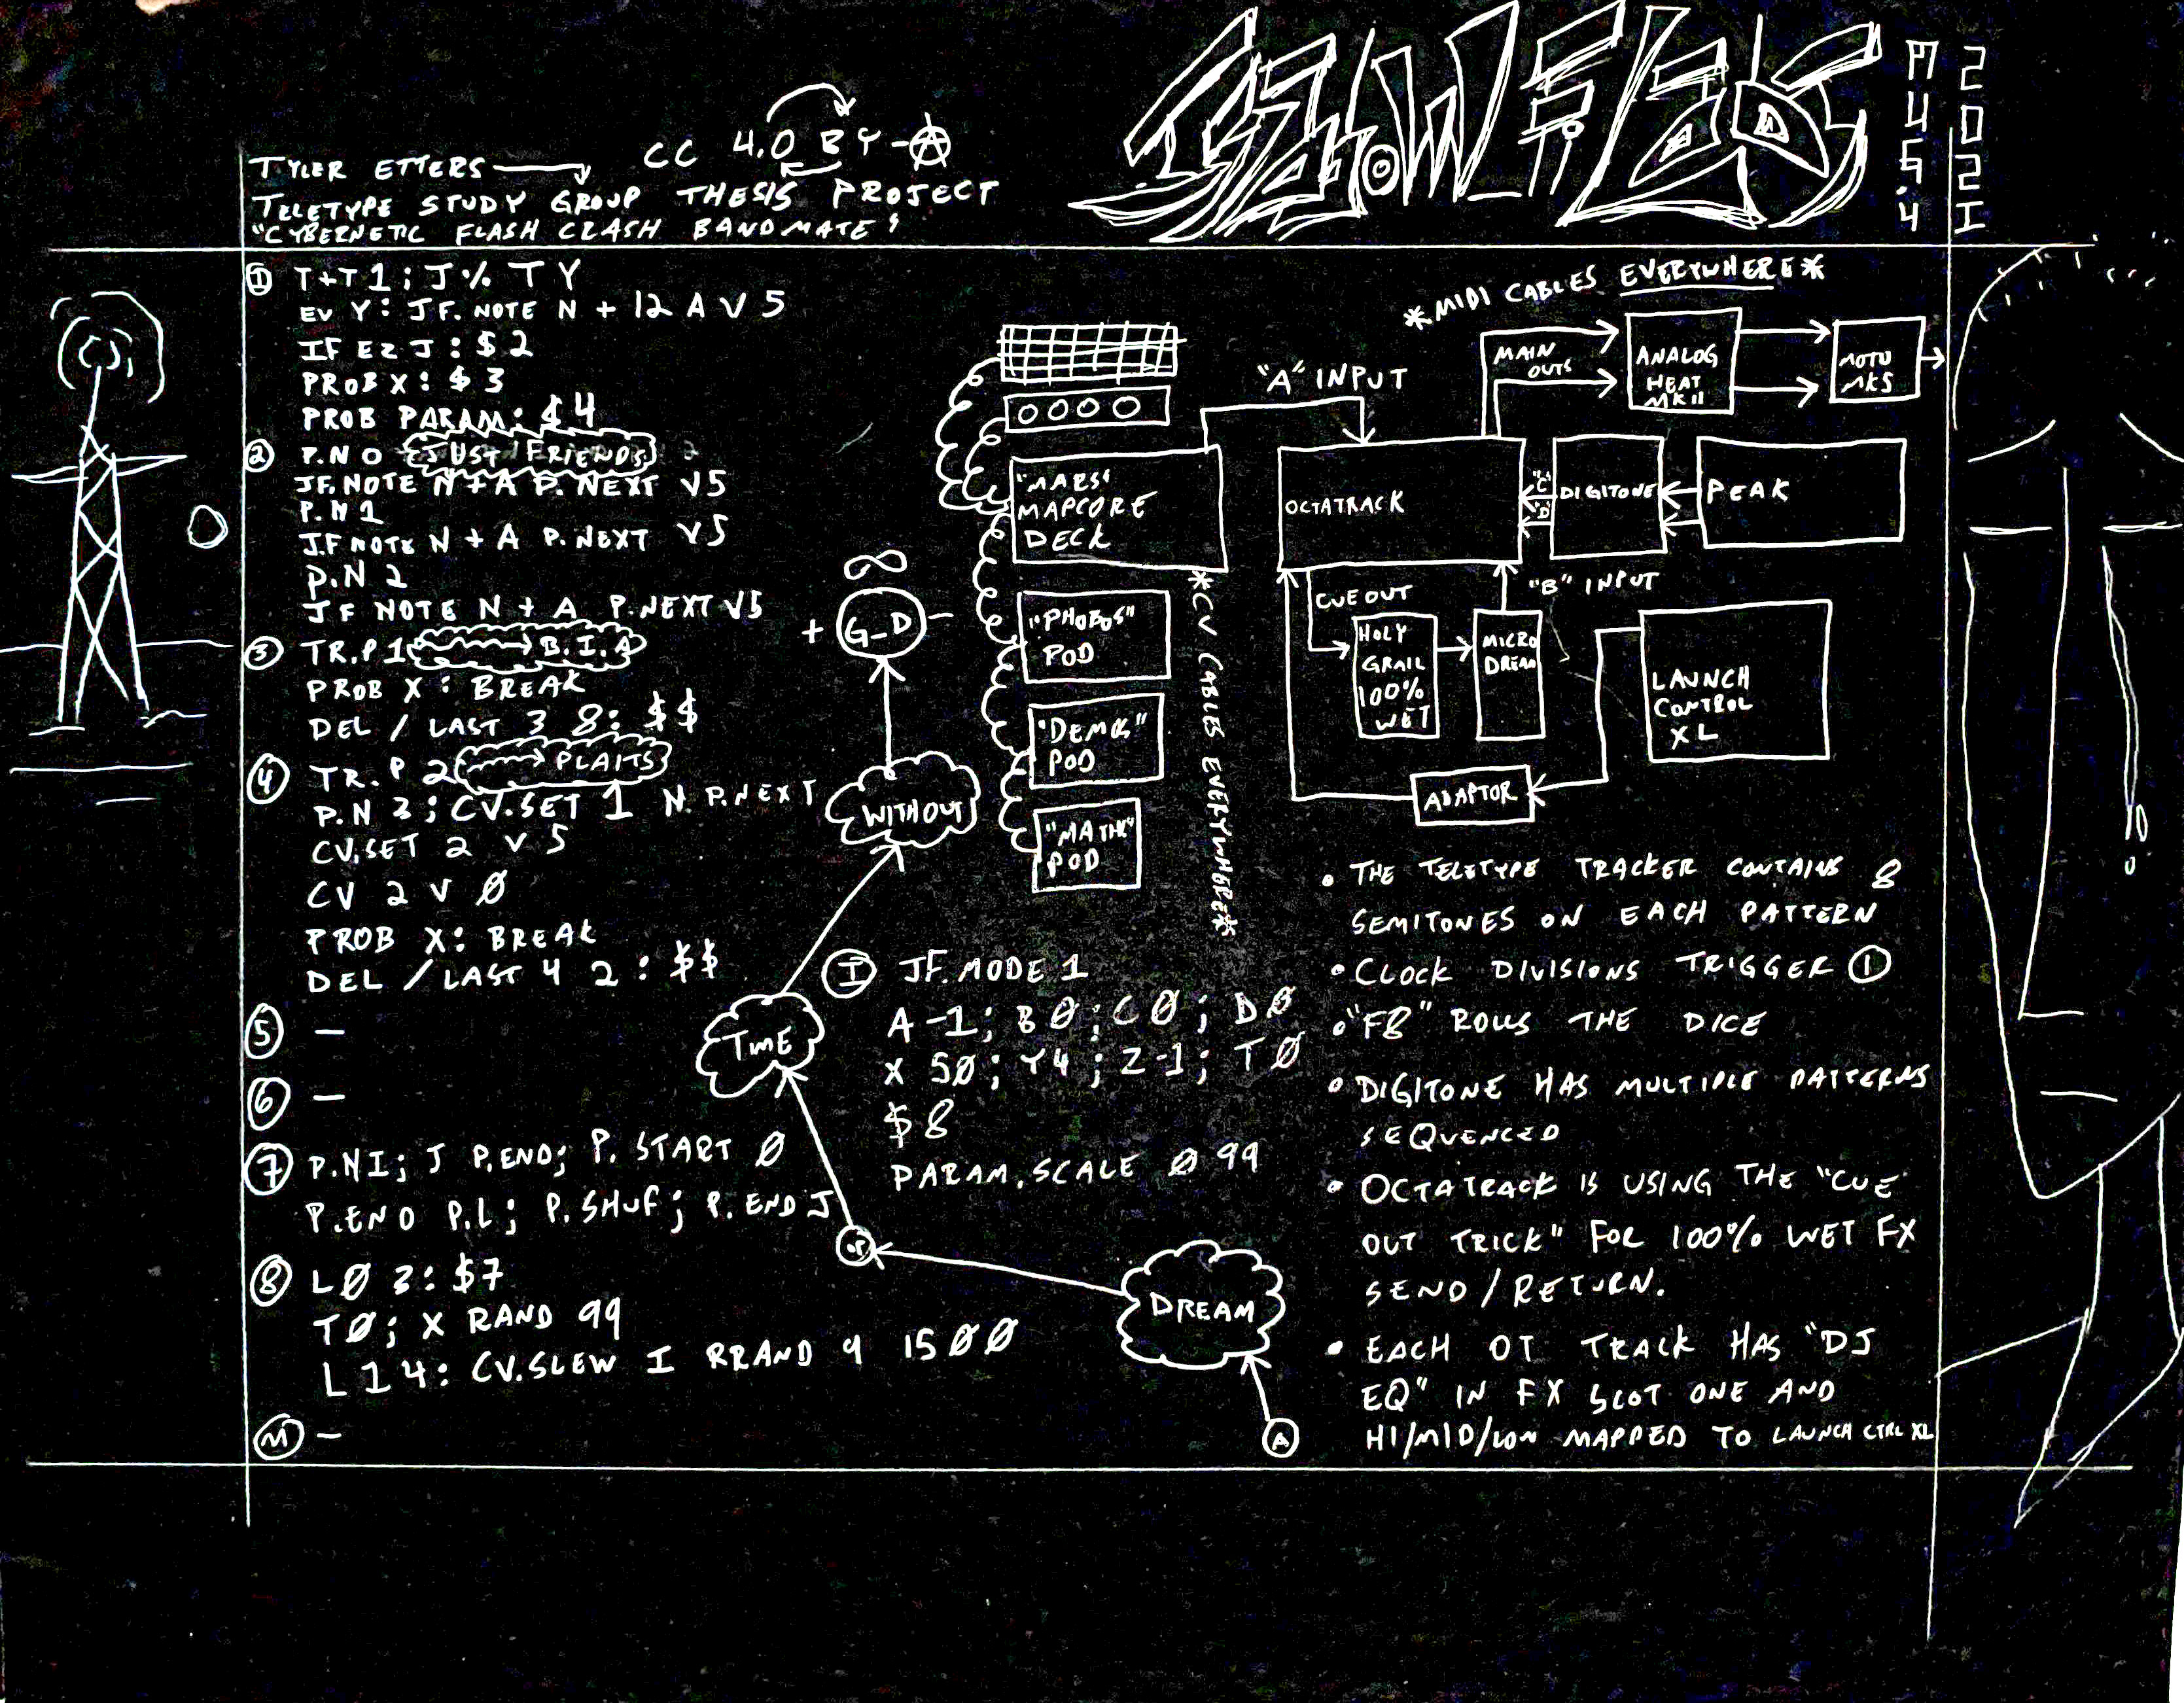 TYLER ETTERS
CC 4.0 BY-Ⓐ
TELETYPE STUDY GROUP THESIS PROJECT
"CYBERNETIC FLASH CRASH BANDMATE"
2021
① T+T1; J % T Y
EV Y: JF.NOTE N + 12 A V 5
IF EZ J: $ 2
PROB X: $ 3
PROB PARAM: $ 4
② P.N 0 JUST FRIENDS
JF.NOTE N + A P.NEXT V5
P.N 1
JF NOTE N + A P.NEXT V5
P.N 2
JF NOTE N + A P.NEXT V5
③ TR.P 1 B.I.A
PROB X: BREAK
DEL / LAST 3 8: $$
④ TR.P 2 PLAITS
P.N 3; CV.SET 1 N. P.NEXT
CV.SET 2 V 5
CV 2 V Ø
PROB X: BREAK
DEL / LAST 4 2: $$
⑤ –
⑥ –
⑦ P.N I; J P.END; P. START Ø
P.END P.L; P.SHUF; P.END J
⑧ L Ø 3: $7
T Ø; X RAND 99
L 1 4: CV.SLEW I RRAND 9 15ØØ
Ⓜ –
∞
+ G_D –
WITHOUT
TIME
OR
DREAM
A
Ⓘ JF.MODE 1
A -1; B Ø; C Ø; D Ø
X 5Ø; Y4; Z-1; T Ø
$ 8
PARAM.SCALE Ø 99
*MIDI CABLES EVERYWHERE*
"MARS"
MAPCORE
DECK
"PHOBOS"
POD
POD
POD
*CV CABLES EVERYWHERE*
"A" INPUT
MAIN
OUTS
ANALOG
HEAT
MKII
MOTU
MK5
OCTATRACK
"C"
"D"
DIGITONE
PEAK
CUE OUT
"B" INPUT
HOLY
GRAIL
100%
WET
MICRO
DREAM
LAUNCH
CONTROL
XL
ADAPTOR
• THE TELETYPE TRACKER CONTAINS 8
SEMITONES ON EACH PATTERN
• CLOCK DIVISIONS TRIGGER ①
• "F8" ROLLS THE DICE
• DIGITONE HAS MULTIPLE PATTERNS
SEQUENCED
• OCTATRACK IS USING THE "CUE
OUT TRICK" FOR 100% WET FX
SEND/RETURN.
• EACH OT TRACK HAS "DJ
EQ" IN FX SLOT ONE AND
HI/MID/LOW MAPPED TO LAUNCH CTRL XL